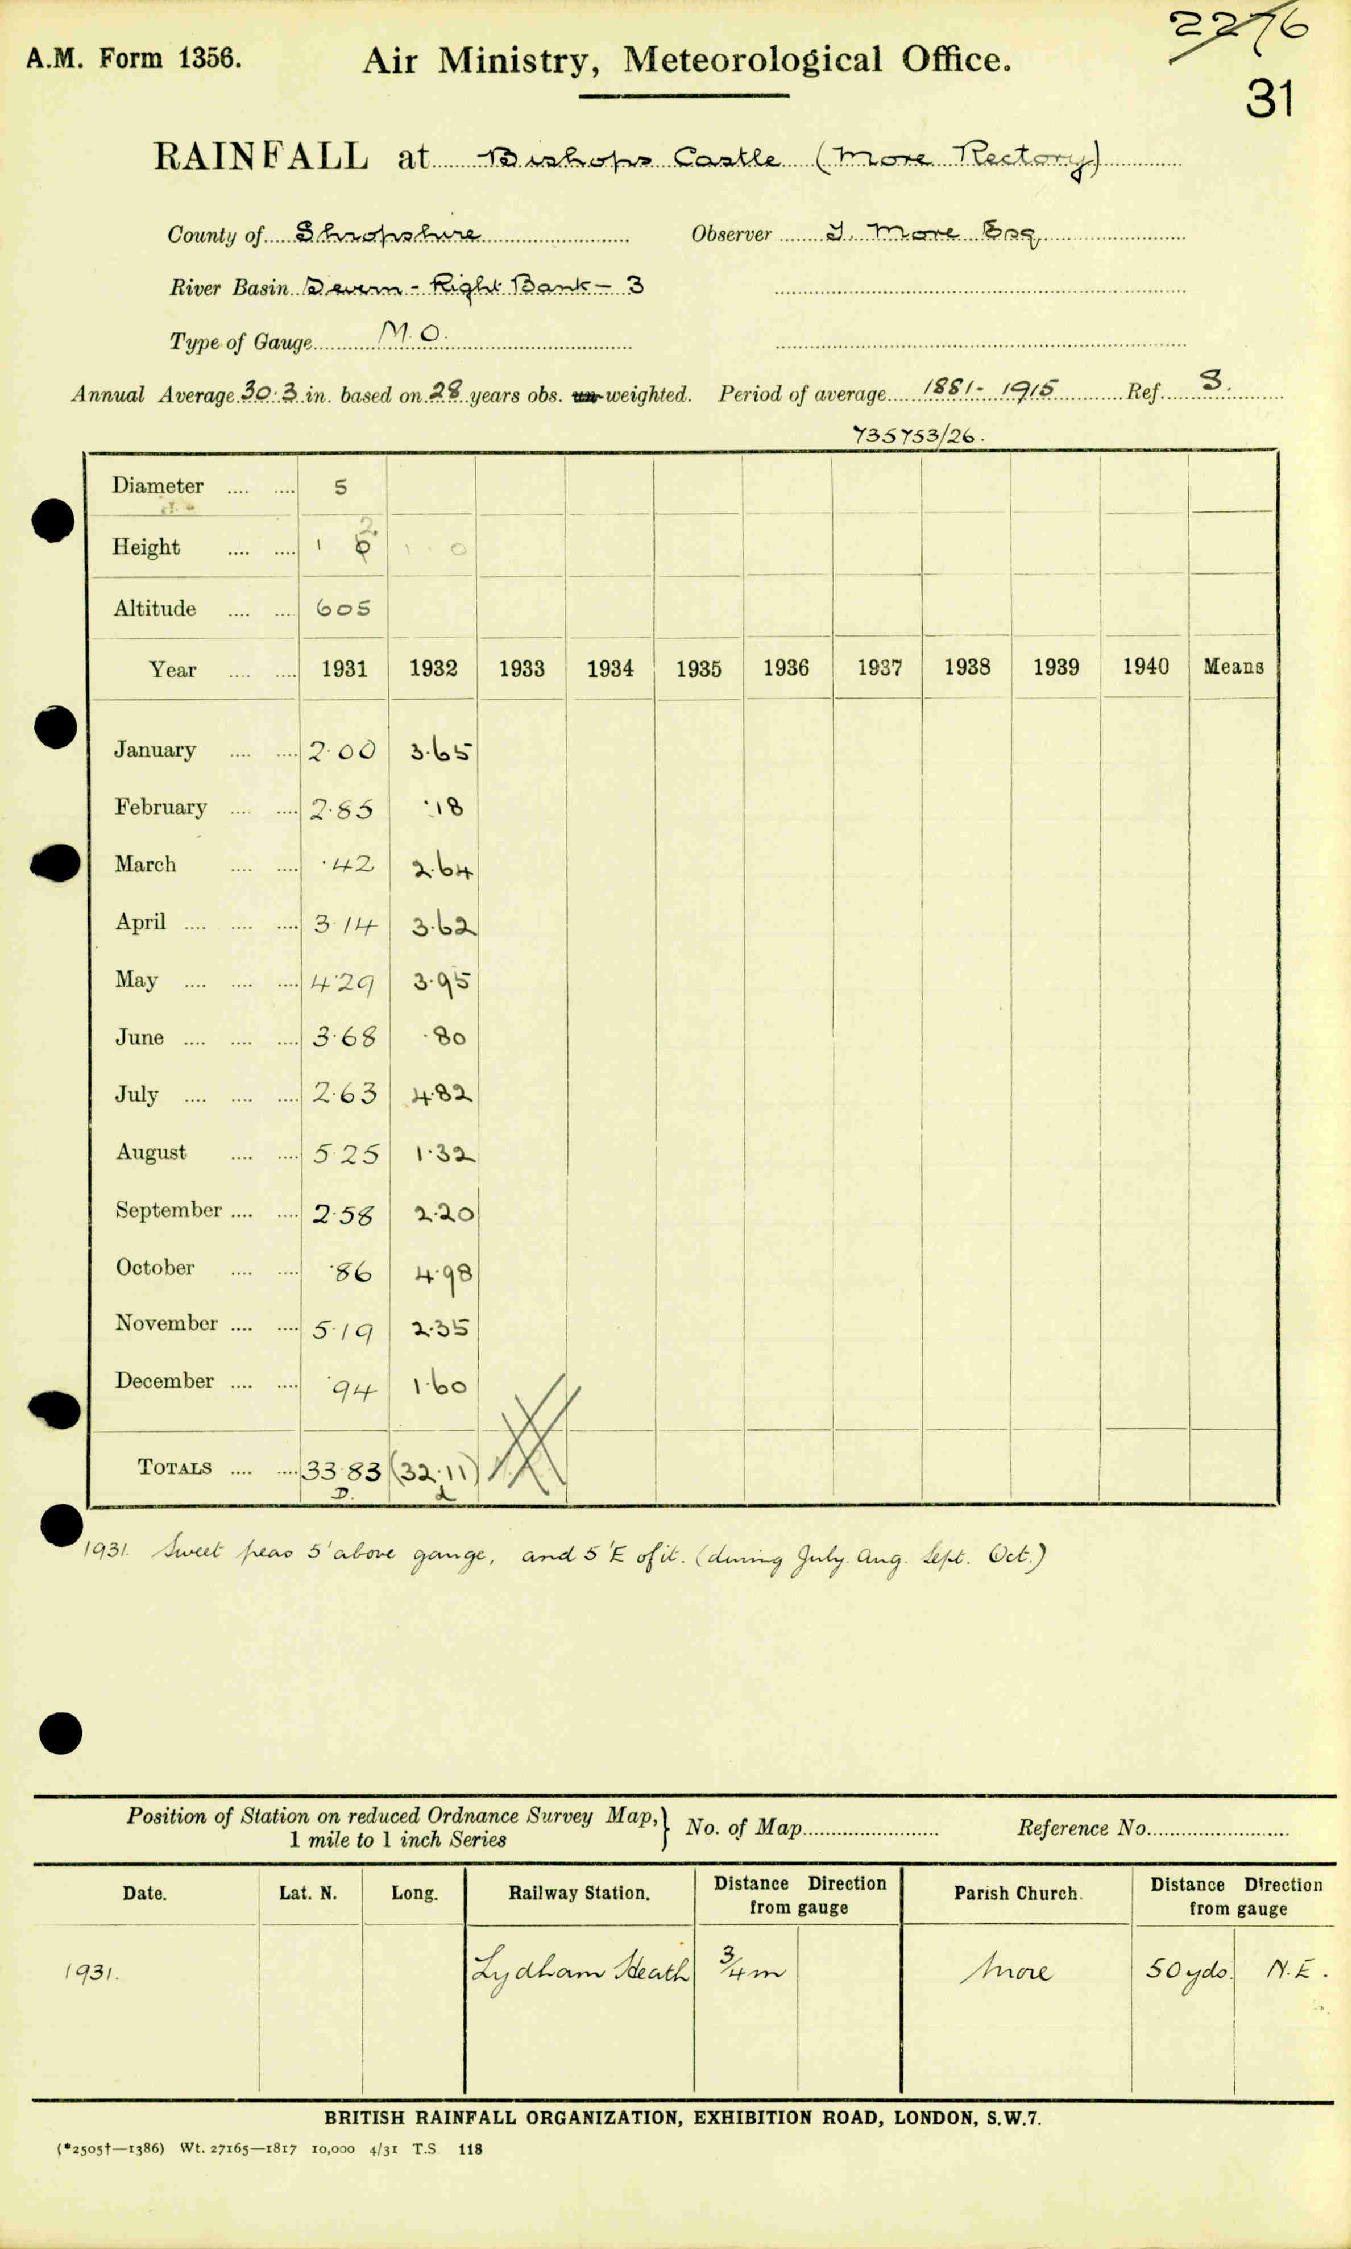 2276
A.M. Form 1356. Air Ministry, Meteorological Office.
31
RAINFALL at Bishops Castle (More Rectory)
County of Shropshire Observer J. More Esq.
River Basin Severn - Right Bank - 3
Type of Gauge M.O.
Annual Average 30.3 in. based on 28 years obs. un-weighted. Period of average 1881-1915 Ref. S.
735753/26.
Diameter .... .... 5
Height .... .... 1 6 2 1 0
Altitude .... .... 605
Year .... .... 1931 1932 1933 1934 1935 1936 1937 1938 1939 1940 Means
January .... .... 2.00 3.65
February .... .... 2.85 .18
March .... .... .42 2.64
April .... .... .... 3.14 3.62
May .... .... .... 4.29 3.95
June .... .... .... 3.68 .80
July .... .... .... 2.63 4.82
August .... .... 5.25 1.32
September .... .... 2.58 2.20
October .... .... .86 4.98
November .... .... 5.19 2.35
December .... .... .94 1.60
TOTALS .... .... 33.83 (32.11)
D. d
1931. Sweet peas 5' above gauge, and 5' E of it. (during July. Aug. Sept. Oct.)
Position of Station on reduced Ordnance Survey Map, } No. of Map Reference No.
1 mile to 1 inch Series
Date. Lat. N. Long. Railway Station. Distance Direction from gauge Parish Church. Distance Direction from gauge
1931. Lydham Heath 3/4 m More 50 yds. N.E.
BRITISH RAINFALL ORGANIZATION, EXHIBITION ROAD, LONDON, S.W.7.
(*2505†—1386) Wt. 27165—1817 10,000 4/31 T.S 118